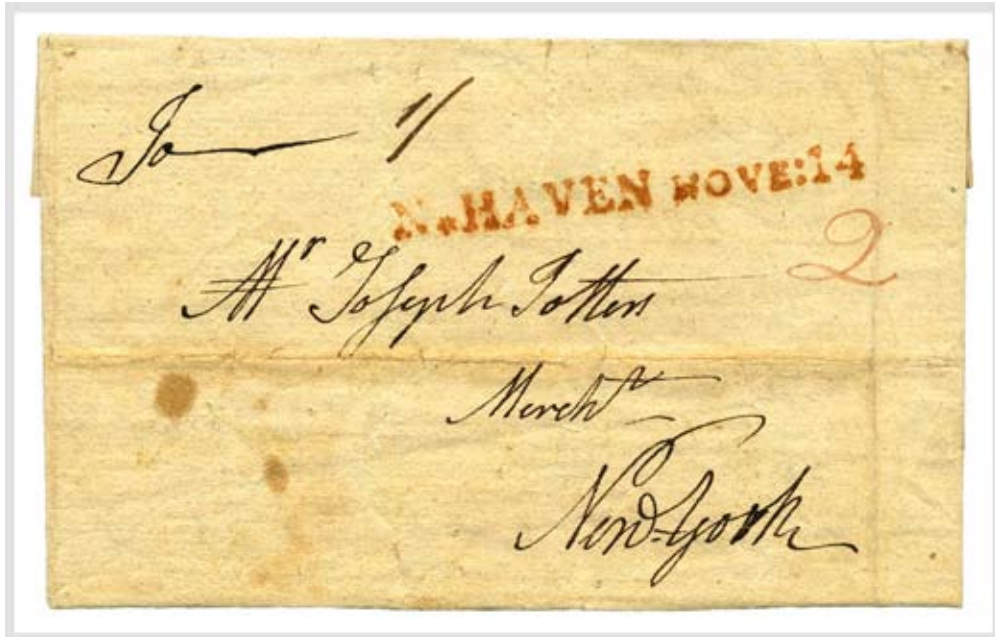 To 1/
N.HAVEN NOVE:14
2
Mr Joseph Totten
Mercht
New York